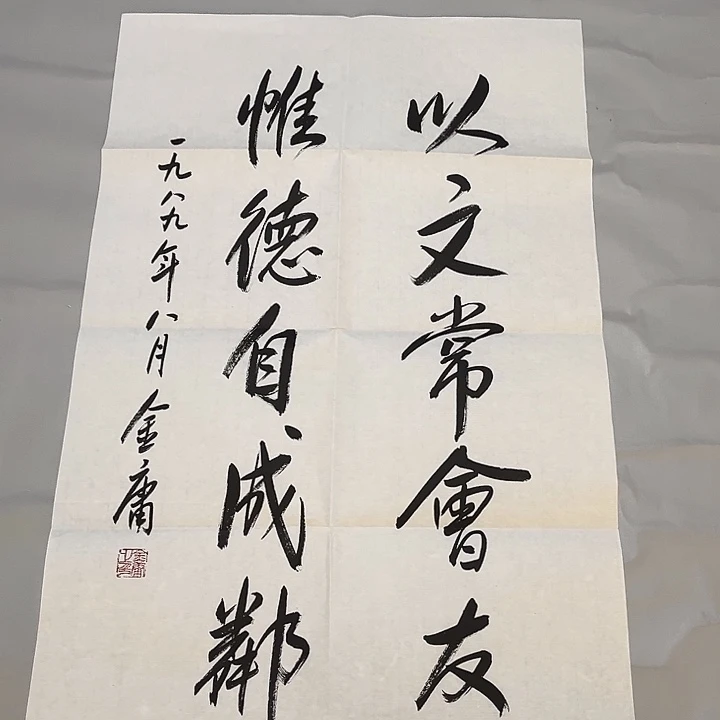 以文常會友
惟德自成鄰
一九八九年八月 金庸